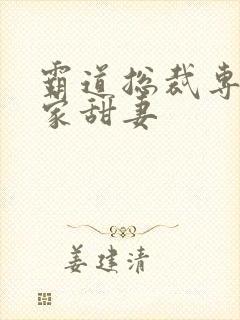 霸道总裁专
家甜妻
姜建清